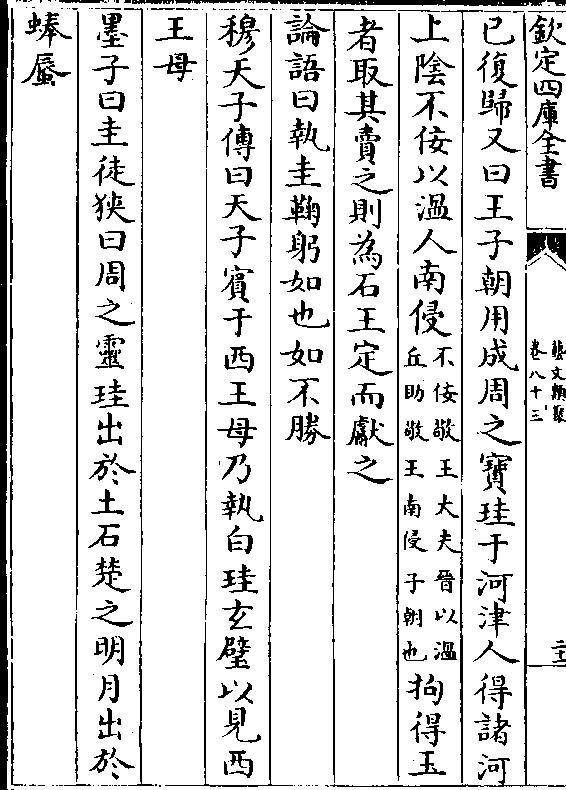 欽定四庫全書
藝文類聚
卷八十三
二十
已復歸又曰王子朝用成周之寶珪于河津人得諸河
上陰不佞以溫人南侵
不佞敬王大夫晉以溫
丘助敬王南侵子朝也
拘得玉
者取其賣之則為石王定而獻之
論語曰執圭鞠躬如也如不勝
穆天子傳曰天子賓于西王母乃執白珪玄璧以見西
王母
墨子曰圭徒狹曰周之靈珪出於土石楚之明月出於
蜯蜃